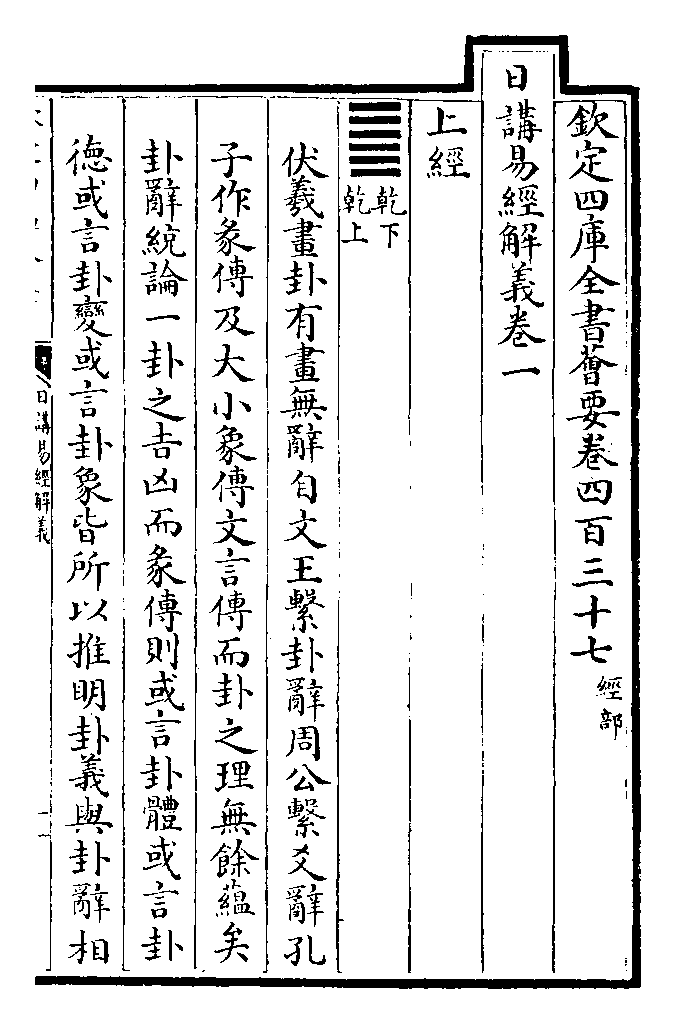 欽定四庫全書薈要卷四百三十七經部
日講易經解義卷一
上經
乾下
乾上
伏羲畫卦有畫無辭自文王繫卦辭周公繫爻辭孔
子作彖傳及大小象傳文言傳而卦之理無餘蘊矣
卦辭統論一卦之吉凶而彖傳則或言卦體或言卦
德或言卦變或言卦象皆所以推明卦義與卦辭相
日講易經解義